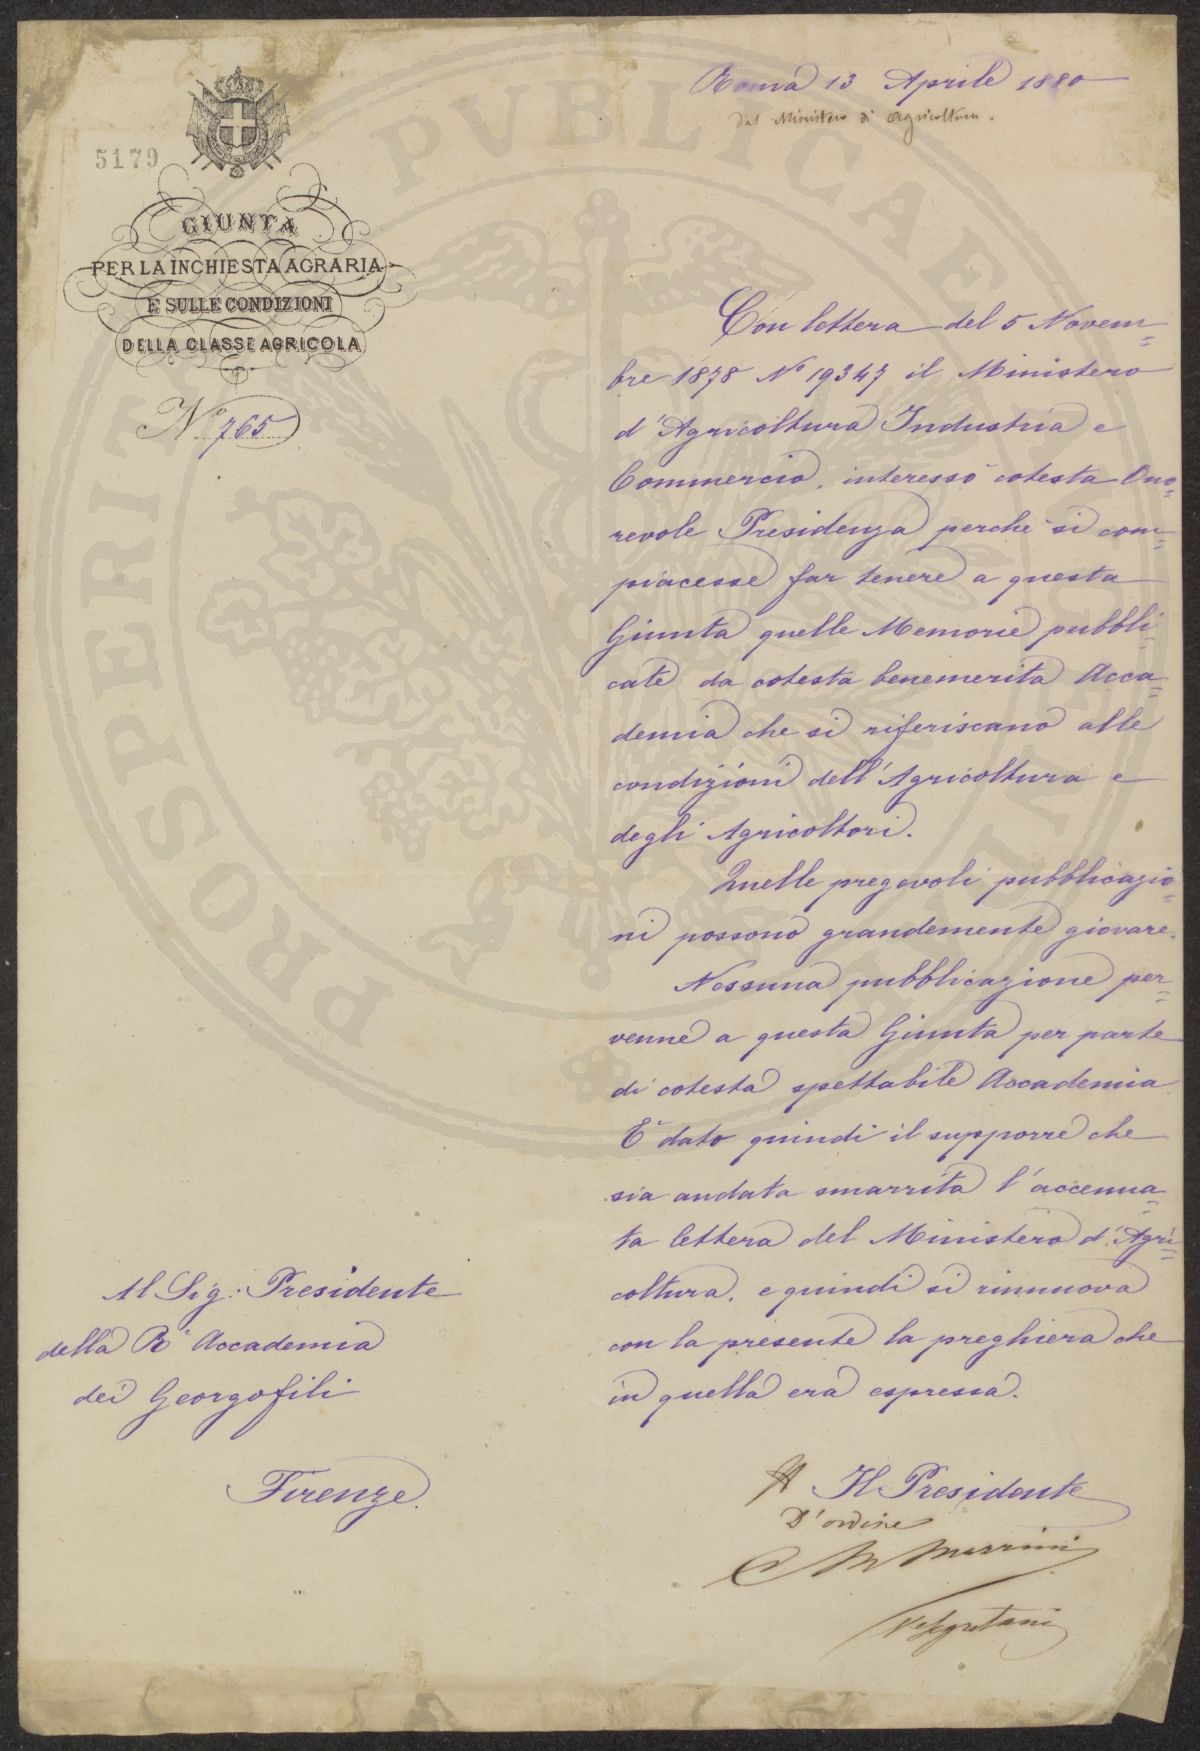 Roma 13 Aprile 1880
dal Ministero di Agricoltura.
5179
GIUNTA
PER LA INCHIESTA AGRARIA
E SULLE CONDIZIONI
DELLA CLASSE AGRICOLA
N° 765
Con lettera del 5 Novem=
bre 1878 N° 19347 il Ministero
d'Agricoltura Industria e
Commercio, interessò cotesta Ono=
revole Presidenza perchè si com=
piacesse far tenere a questa
Giunta quelle Memorie pubbli=
cate da cotesta benemerita Acca=
demia che si riferiscano alle
condizioni dell'Agricoltura e
degli Agricoltori.
Quelle pregevoli pubblicazio=
ni possono grandemente giovare.
Nessuna pubblicazione per=
venne a questa Giunta per parte
di cotesta spettabile Accademia
E' dato quindi il supporre che
sia andata smarrita l'accenna=
ta lettera del Ministero d'Agri=
coltura, e quindi si rinnuova
con la presente la preghiera che
in quella era espressa.
Al Sig: Presidente
della Rᵉ Accademia
dei Georgofili
Firenze.
Il Presidente
D'ordine
PROSPERITATI PVBLICAE